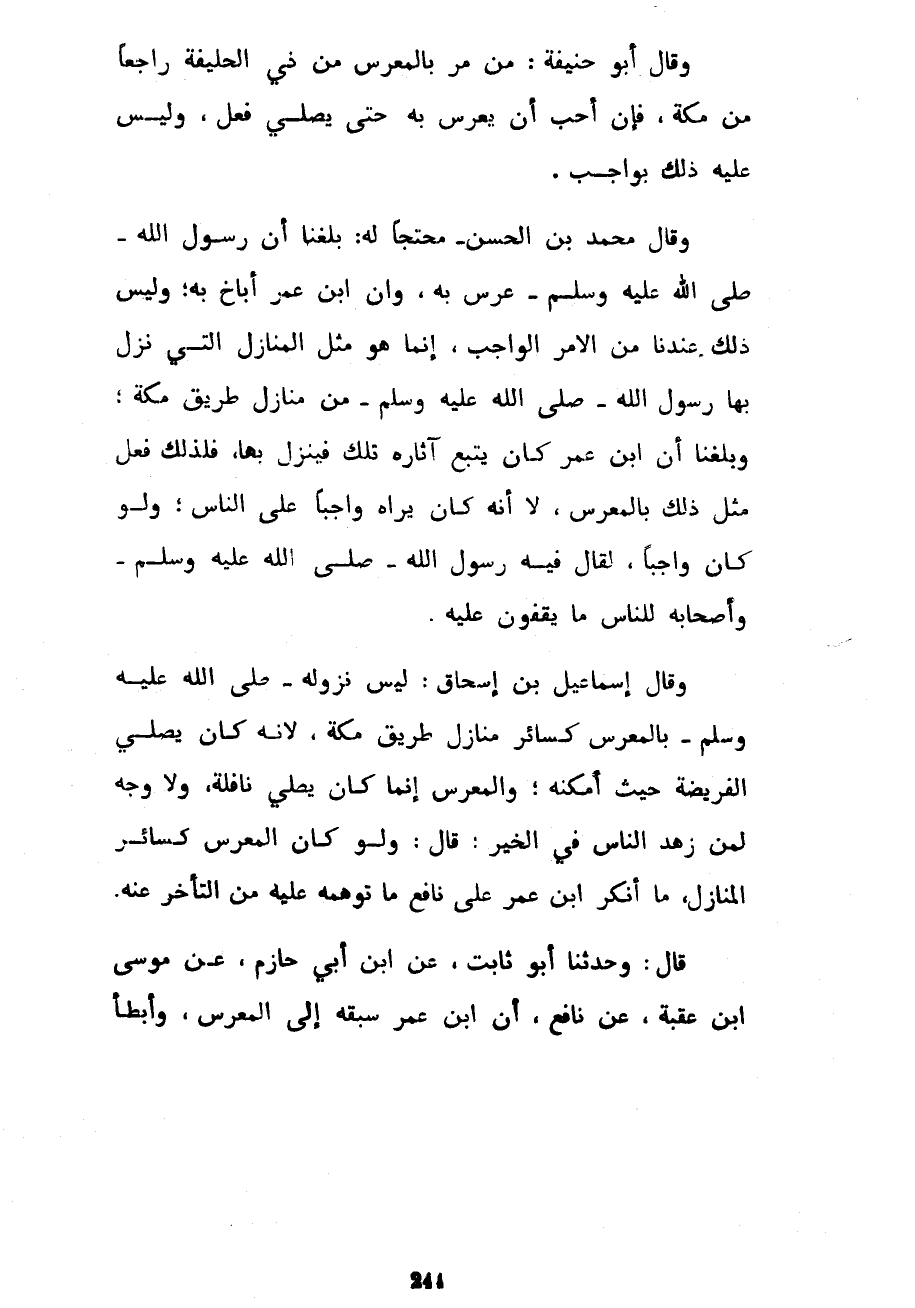 وقال أبو حنيفة : من مر بالمعرس من ذي الحليفة راجعاً
من مكة ، فإن أحب أن يعرس به حتى يصلي فعل ، وليس
عليه ذلك بواجب .
وقال محمد بن الحسن- محتجاً له: بلغنا أن رسول الله -
صلى الله عليه وسلم - عرس به ، وان ابن عمر أباخ به؛ وليس
ذلك عندنا من الامر الواجب ، إنما هو مثل المنازل التي نزل
بها رسول الله - صلى الله عليه وسلم - من منازل طريق مكة ؛
وبلغنا أن ابن عمر كان يتبع آثاره تلك فينزل بها، فلذلك فعل
مثل ذلك بالمعرس ، لا أنه كان يراه واجباً على الناس ؛ ولو
كان واجباً ، لقال فيه رسول الله - صلى الله عليه وسلم -
وأصحابه للناس ما يقفون عليه .
وقال إسماعيل بن إسحاق : ليس نزوله - صلى الله عليه
وسلم - بالمعرس كسائر منازل طريق مكة ، لانه كان يصلي
الفريضة حيث أمكنه ؛ والمعرس إنما كان يصلي نافلة، ولا وجه
لمن زهد الناس في الخير : قال : ولو كان المعرس كسائر
المنازل، ما أنكر ابن عمر على نافع ما توهمه عليه من التأخر عنه.
قال : وحدثنا أبو ثابت ، عن ابن أبي حازم ، عن موسى
ابن عقبة ، عن نافع ، أن ابن عمر سبقه إلى المعرس ، وأبطأ